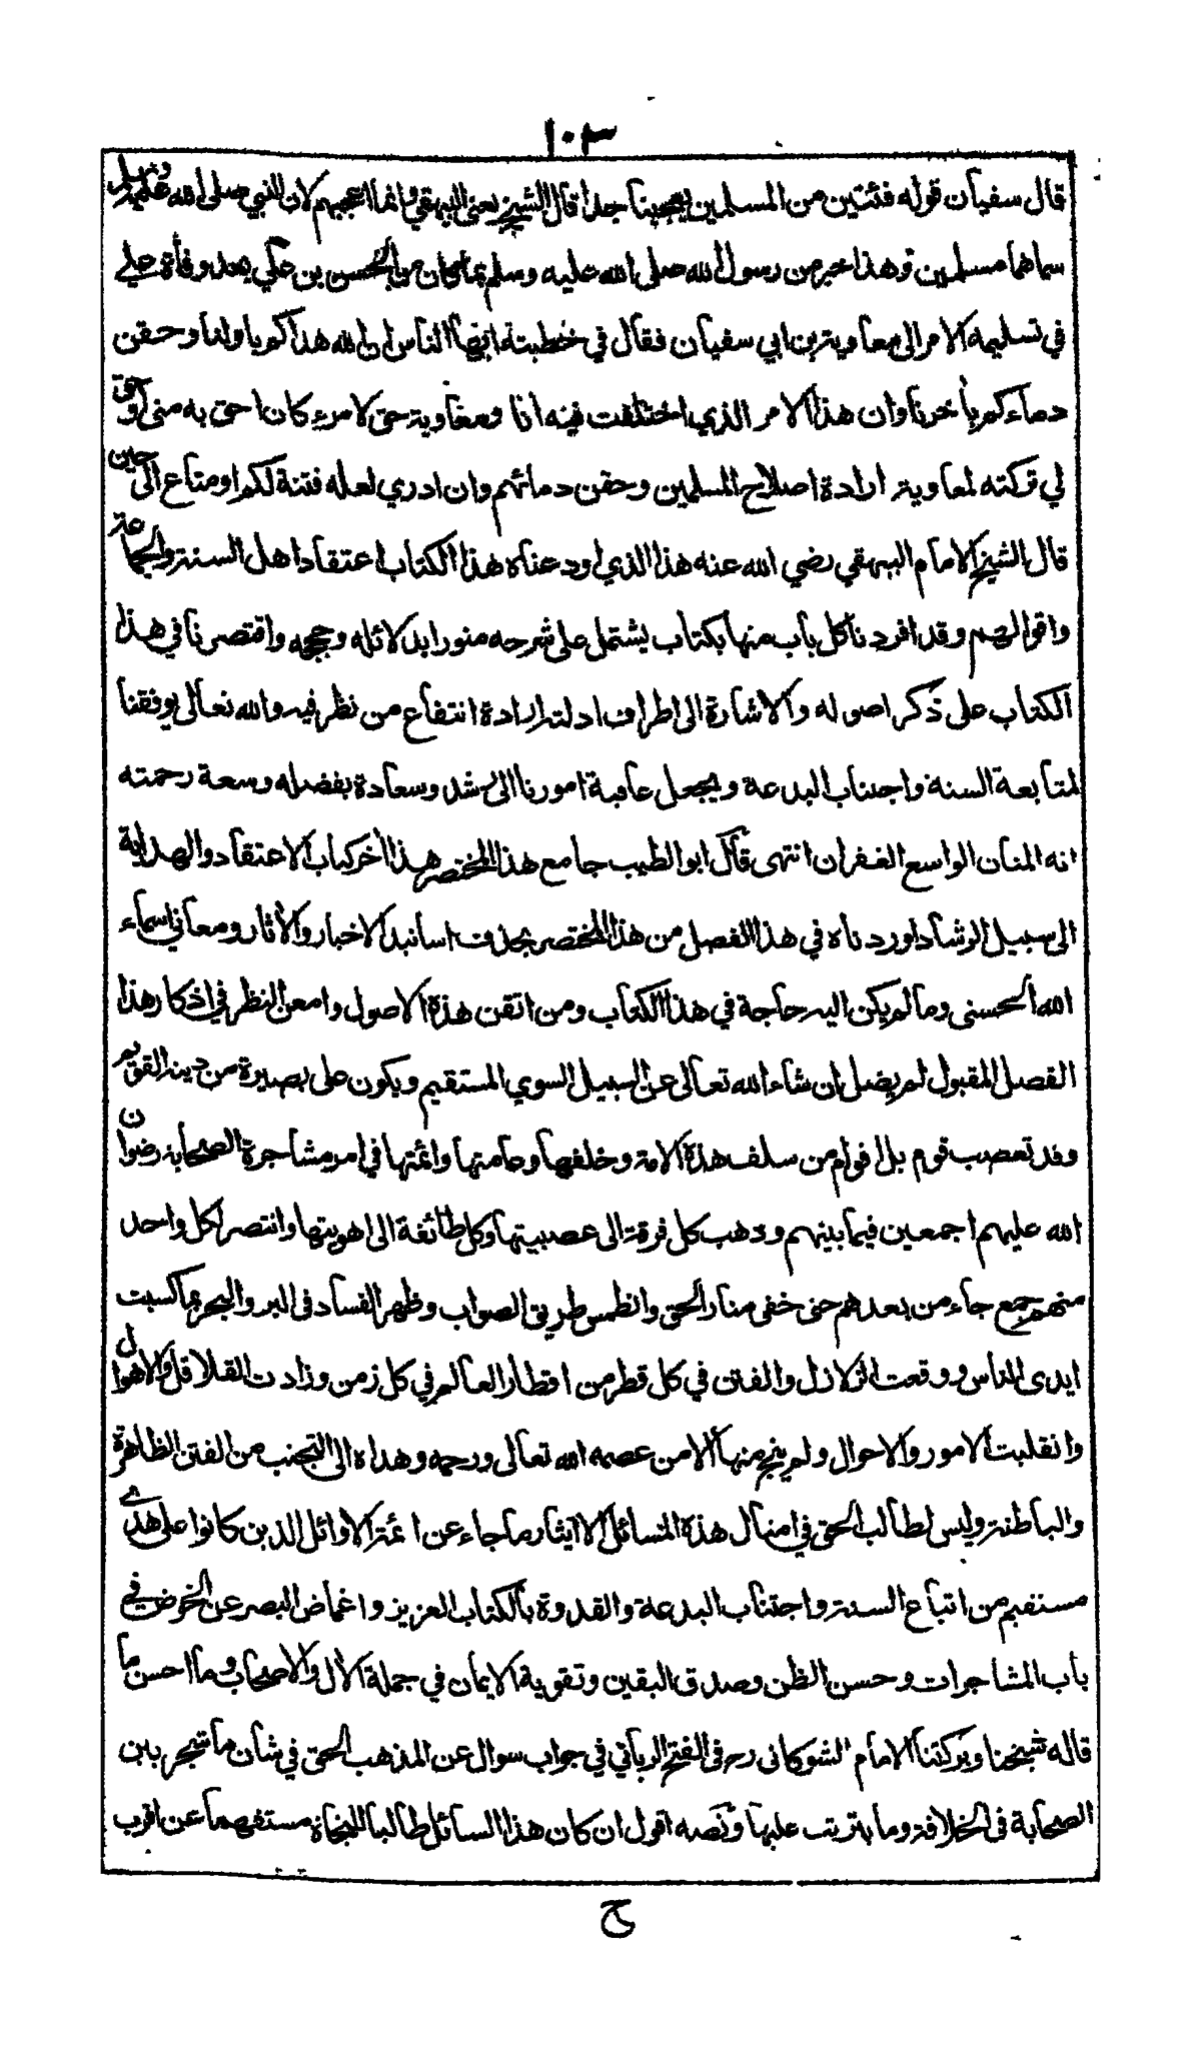 ١٠٣
قال سفيان قوله فئتين من المسلمين يعجبنا جدا قال الشيخ يعنى البيهقي وانما اعجبهم لان النبي صلى الله عليه وسلم
سماهما مسلمين وهذا خبر من رسول الله صلى الله عليه وسلم بما كان من الحسن بن علي بعد وفاة علي
في تسليمه الامر الى معاوية بن ابي سفيان فقال في خطبته ايها الناس ان الله هداكم باولنا وحقن
دماءكم بأخرنا وان هذا الامر الذي اختلفت فيه انا ومعاوية حق لامرء كان احق به مني او حق
لي تركته لمعاوية ارادة اصلاح المسلمين وحقن دمائهم وان ادري لعله فتنة لكم او متاع الى حين
قال الشيخ الامام البيهقي رضي الله عنه هذا الذي اودعناه هذا الكتاب اعتقاد اهل السنة والجماعة
واقوالهم وقد افردنا كل باب منها بكتاب يشتمل على شرحه منورا بدلائله وحججه واقتصرنا في هذا
الكتاب على ذكر اصوله والاشارة الى اطراف ادلته ارادة انتفاع من نظر فيه والله تعالى يوفقنا
لمتابعة السنة واجتناب البدعة ويجعل عاقبة امورنا الى رشد وسعادة بفضله وسعة رحمته
انه المنان الواسع الغفران انتهى قال ابو الطيب جامع هذا المختصر هذا أخر كتاب الاعتقاد والهداية
الى سبيل الرشاد اوردناه في هذا الفصل من هذا المختصر بحذف اسانيد الاخبار والأثار ومعاني اسماء
الله الحسنى وما لم يكن اليه حاجة في هذا الكتاب ومن اتقن هذه الاصول وامعن النظر في اذكار هذا
الفصل المقبول لم يضل ان شاء الله تعالى عن السبيل السوي المستقيم ويكون على بصيرة من دينه القويم
وقد تعصب قوم بل اقوام من سلف هذه الامة وخلفها وعامتها وائمتها في امر مشاجرة الصحابة رضوان
الله عليهم اجمعين فيما بينهم وذهب كل فرقة الى عصبيتها وكل طائفة الى اهويتها وانتصر لكل واحد
منهم جمع جاء من بعدهم حتى خفى منار الحق وانطمس طريق الصواب وظهر الفساد فى البر والبحر بما كسبت
ايدى الناس ووقعت الزلازل والفتن في كل قطر من اقطار العالم في كل زمن وزادت القلاقل والاهوال
وانقلبت الامور والاحوال ولم ينج منها الا من عصمه الله تعالى ورحمه وهداه الى التجنب من الفتن الظاهرة
والباطنة وليس لطالب الحق في امثال هذه المسائل الا ايثار ما جاء عن ائمة الاوائل الذين كانوا على هدى
مستقيم من اتباع السنة واجتناب البدعة والقدوة بالكتاب العزيز واغماض البصر عن الخوض في
باب المشاجرات وحسن الظن وصدق اليقين وتقوية الايمان في جملة الأل والاصحاب وما احسن ما
قاله شيخنا وبركتنا الامام الشوكانى رح فى الفتح الرباني في جواب سوال عن المذهب الحق في شان ما شجر بين
الصحابة فى الخلافة وما يترتب عليها ونصه اقول ان كان هذا السائل طالبا للنجاة مستفهما عن اقرب
ح